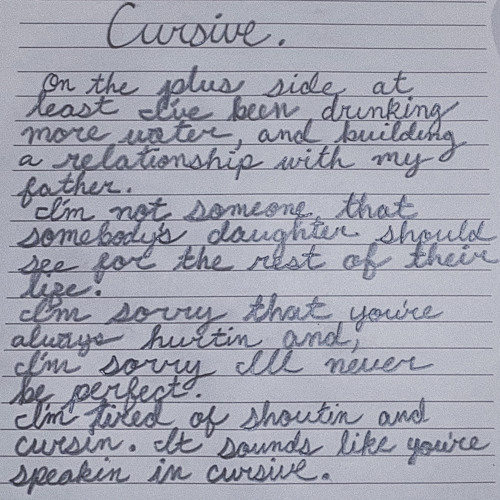 Cursive.
On the plus side at
least I've been drinking
more water, and building
a relationship with my
father.
I'm not someone, that
somebody's daughter should
see for the rest of their
life.
I'm sorry that you're
always hurtin and,
I'm sorry I'll never
be perfect.
I'm tired of shoutin and
cursin. It sounds like you're
speakin in cursive.